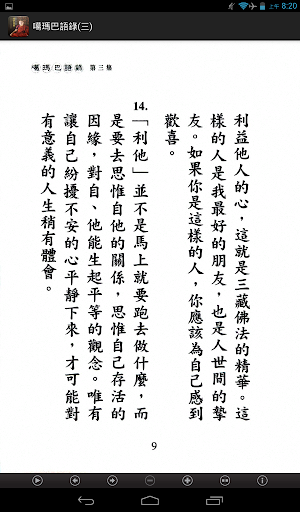 8:20
噶瑪巴語錄(三)
噶瑪巴語錄 第三集
利益他人的心，這就是三藏佛法的精華。這
樣的人是我最好的朋友，也是人世間的摯
友。如果你是這樣的人，你應該為自己感到
歡喜。
14.
「利他」並不是馬上就要跑去做什麼，而
是要去思惟自他的關係，思惟自己存活的
因緣，對自、他能生起平等的觀念。唯有
讓自己紛擾不安的心平靜下來，才可能對
有意義的人生稍有體會。
9